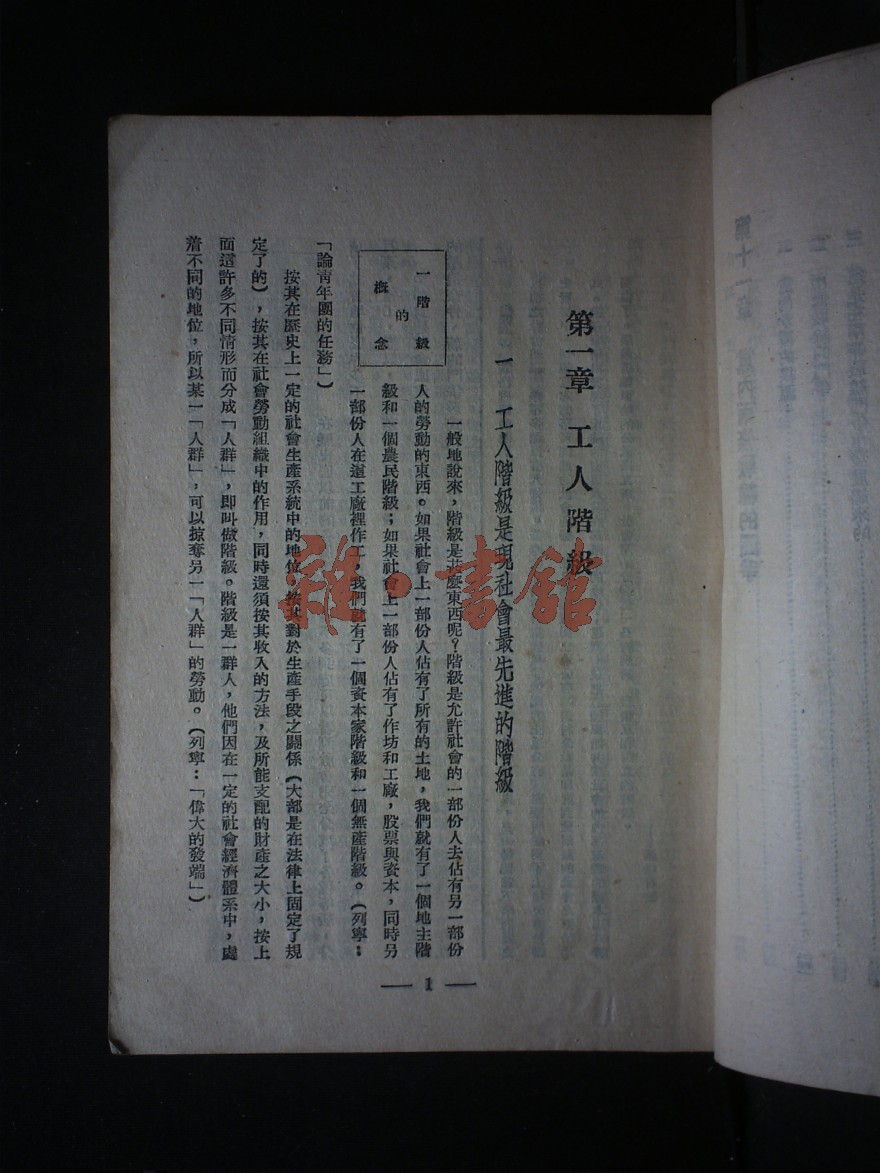 第一章 工人階級
一 工人階級是現社會最先進的階級
一階級
的
概念
一般地說來,階級是甚麼東西呢?階級是允許社會的一部份人去佔有另一部份
人的勞動的東西。如果社會上一部份人佔有了所有的土地,我們就有了一個地主階
級和一個農民階級;如果社會上一部份人佔有了作坊和工廠,股票與資本,同時另
一部份人在這工廠裡作工,我們就有了一個資本家階級和一個無產階級。(列寧:
「論靑年團的任務」)
按其在歷史上一定的社會生產系統中的地位,按其對於生產手段之關係(大部是在法律上固定了規
定了的),按其在社會勞動組織中的作用,同時還須按其收入的方法,及所能支配的財產之大小,按上
面這許多不同情形而分成「人群」,即叫做階級。階級是一群人,他們因在一定的社會經濟體系中,處
着不同的地位,所以某一「人群」,可以掠奪另一「人群」的勞動。(列寧:「偉大的發端」)
— 1 —
雜·書館